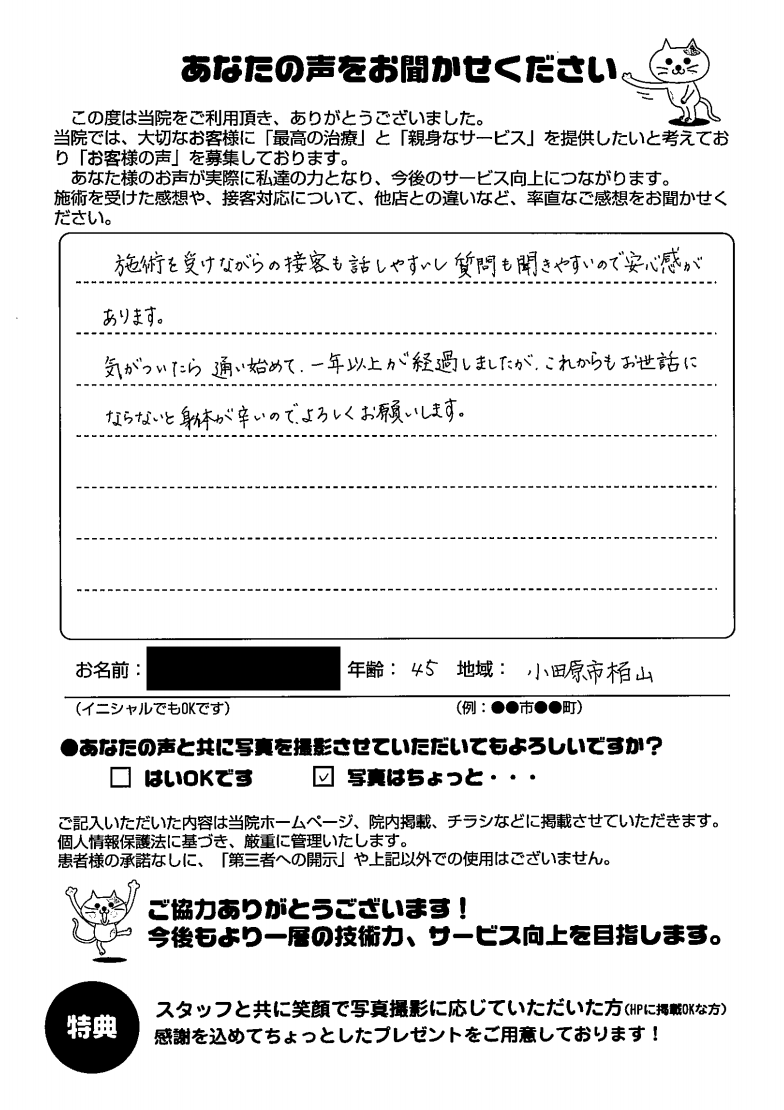 あなたの声をお聞かせください
この度は当院をご利用頂き、ありがとうございました。
当院では、大切なお客様に「最高の治療」と「親身なサービス」を提供したいと考えてお
り「お客様の声」を募集しております。
あなた様のお声が実際に私達の力となり、今後のサービス向上につながります。
施術を受けた感想や、接客対応について、他店との違いなど、率直なご感想をお聞かせく
ださい。
施術を受けながらの接客も話しやすいし質問も聞きやすいので安心感が
あります。
気がついたら通い始めて、一年以上が経過しましたが、これからもお世話に
ならないと身体が辛いので、よろしくお願いします。
お名前： 年齢： 45 地域： 小田原市栢山
（イニシャルでもOKです） （例：●●市●●町）
●あなたの声と共に写真を撮影させていただいてもよろしいですか？
□ はいOKです ☑ 写真はちょっと・・・
ご記入いただいた内容は当院ホームページ、院内掲載、チラシなどに掲載させていただきます。
個人情報保護法に基づき、厳重に管理いたします。
患者様の承諾なしに、「第三者への開示」や上記以外での使用はございません。
ご協力ありがとうございます！
今後もより一層の技術力、サービス向上を目指します。
特典
スタッフと共に笑顔で写真撮影に応じていただいた方(HPに掲載OKな方)
感謝を込めてちょっとしたプレゼントをご用意しております！